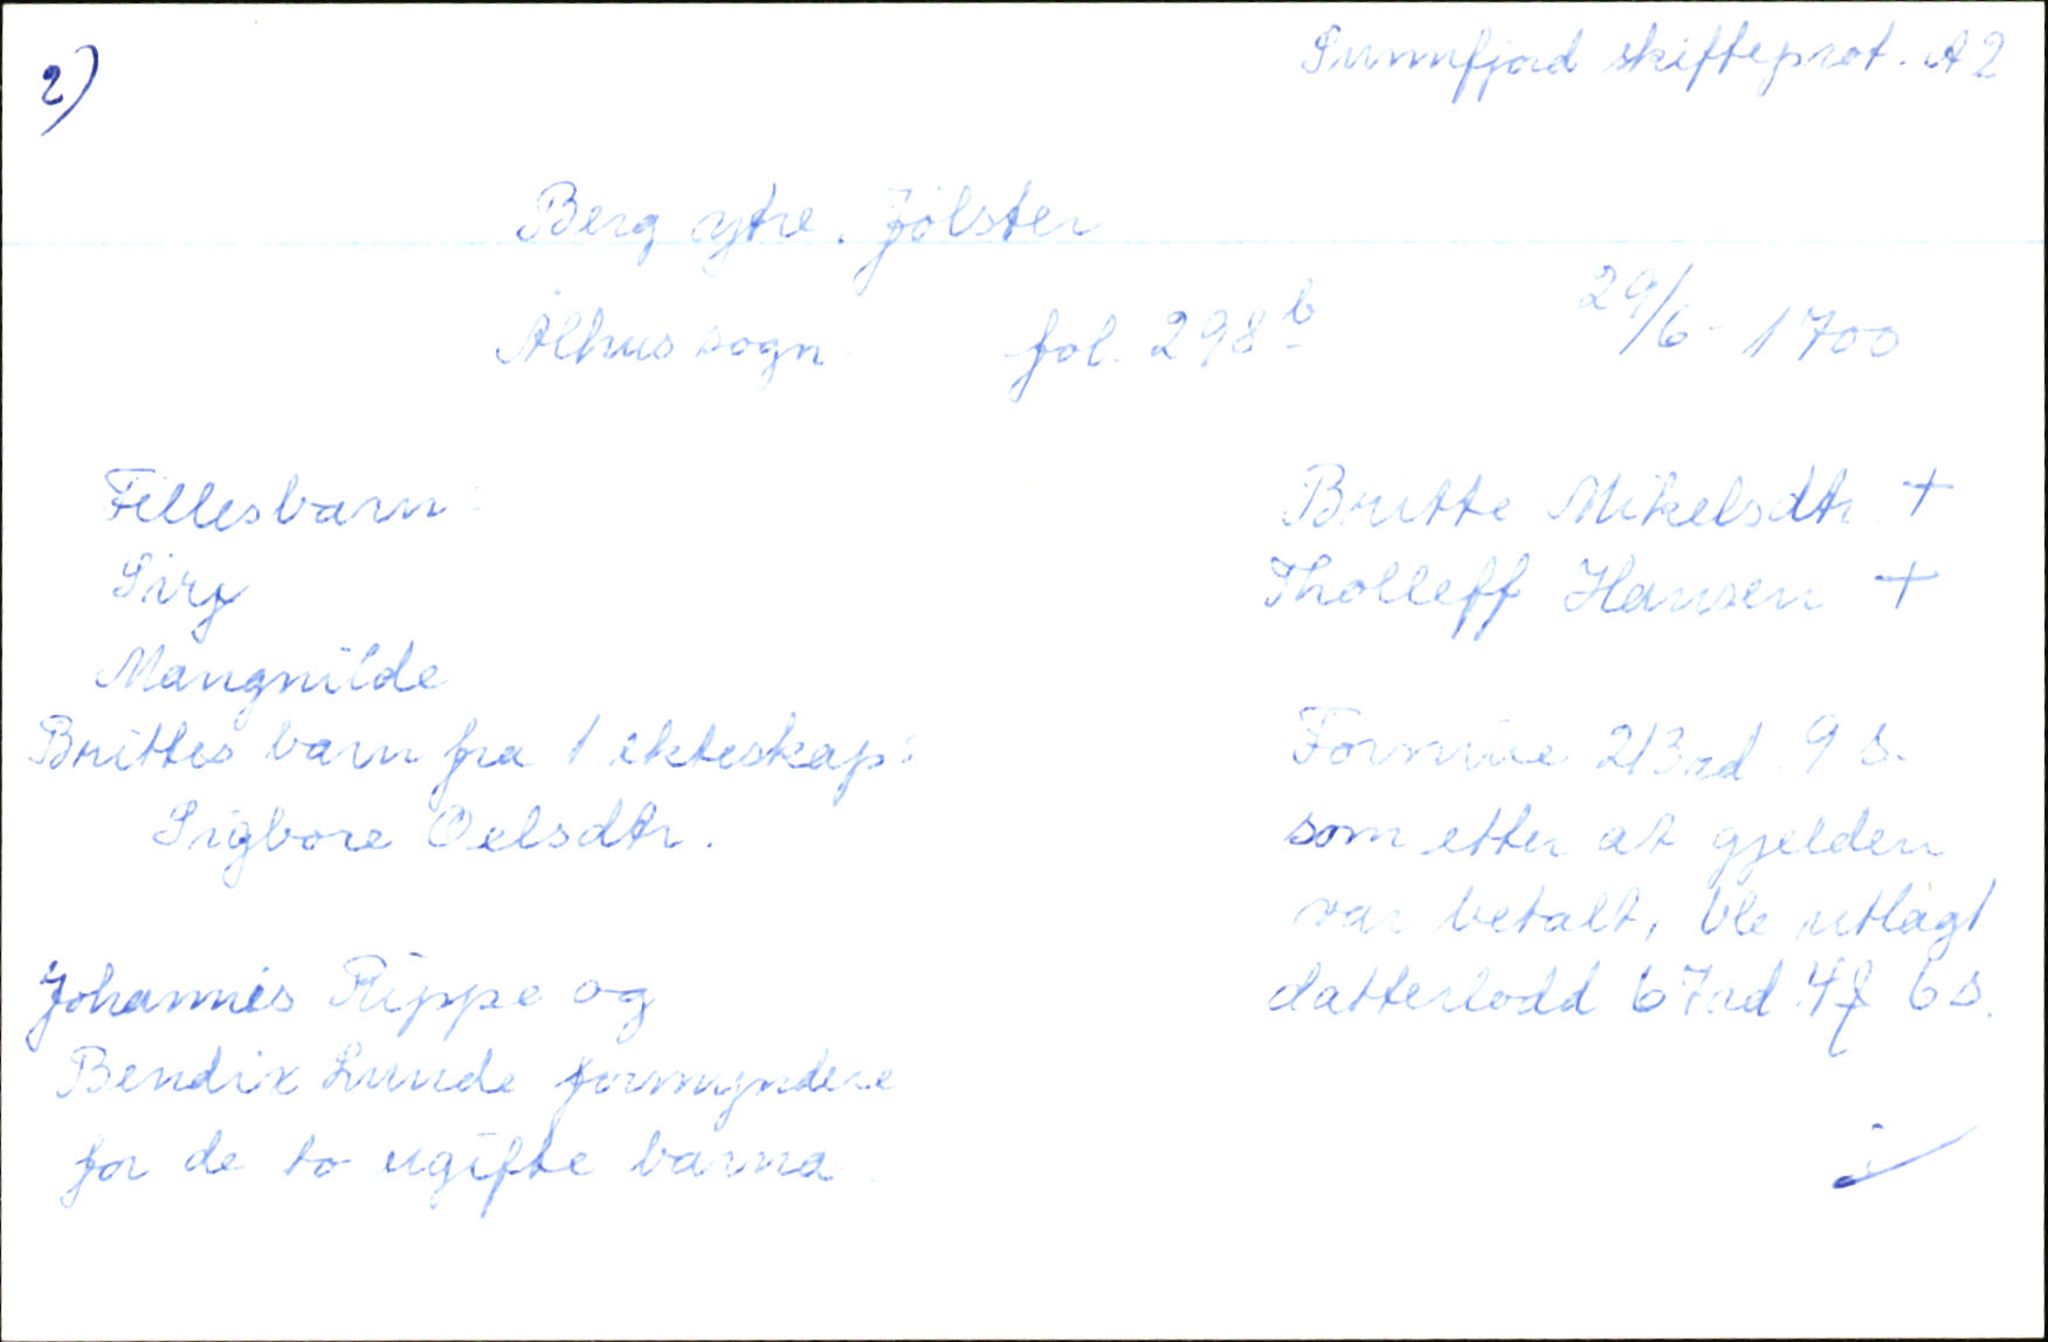 2)
Sunnfjord skifteprot. A 2
Berg ytre. Jölster
Ålhus sogn fol. 298 b 29/6 - 1700
Fellesbarn:
Siry
Mangnilde
Brittes barn fra 1 ekteskap:
Sigbore Oelsdtr.
Johannes Rippe og
Bendix Lunde formyndere
for de to ugifte barna.
Britte Mikelsdtr. +
Tholleff Hansen +
Formue 213 rd. 9 s.
som etter at gjelden
var betalt, ble utlagt
datterlodd 67 rd. 4 6 s.